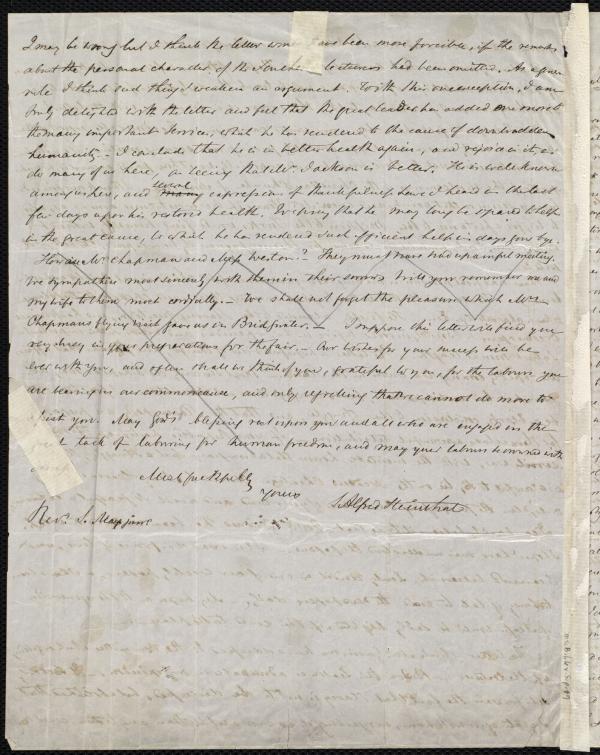 I may be wrong but I think the letter would have been more forcible, if the remarks
about the personal character of the Southern had been omitted. As a general
rule I think such things weaken an argument. With this one exception, I am
truly delighted with the letter and feel that the great leader has added one more to
the many important services, which he has rendered to the cause of downtrodden
humanity. – I conclude that he is in better health again, and rejoice in it, as
do many of us here, in seeing that Mr. Jackson is better. He is well known
amongst us here, and several expressions of thankfulness have I heard in the last
few days upon his restored health. I pray that he may long be spared to help
in the great cause, to which he has rendered such efficient help in days gone by.
How are Mrs Chapman and Miss Weston? They must have had a painful meeting.
We sympathize most sincerely with them in their sorrow. Will you remember me and
my wife to them most cordially. – We shall not forget the pleasure which Mrs
Chapman's flying visit gave us in Bridgwater. – I suppose this letter will find you
very busy in your preparations for the fair. – Our wishes for your success will be
ever with you, and often shall we think of you, grateful to you, for the labours you
are bearing in our common cause, and only regretting that we cannot do more to
assist you. May God's blessing rest upon you and all who are engaged in the
great task of laboring for human freedom, and may your labours be crowned with
Most respectfully
Yours
S. Alfred Steinthal
Revd. S. May junr